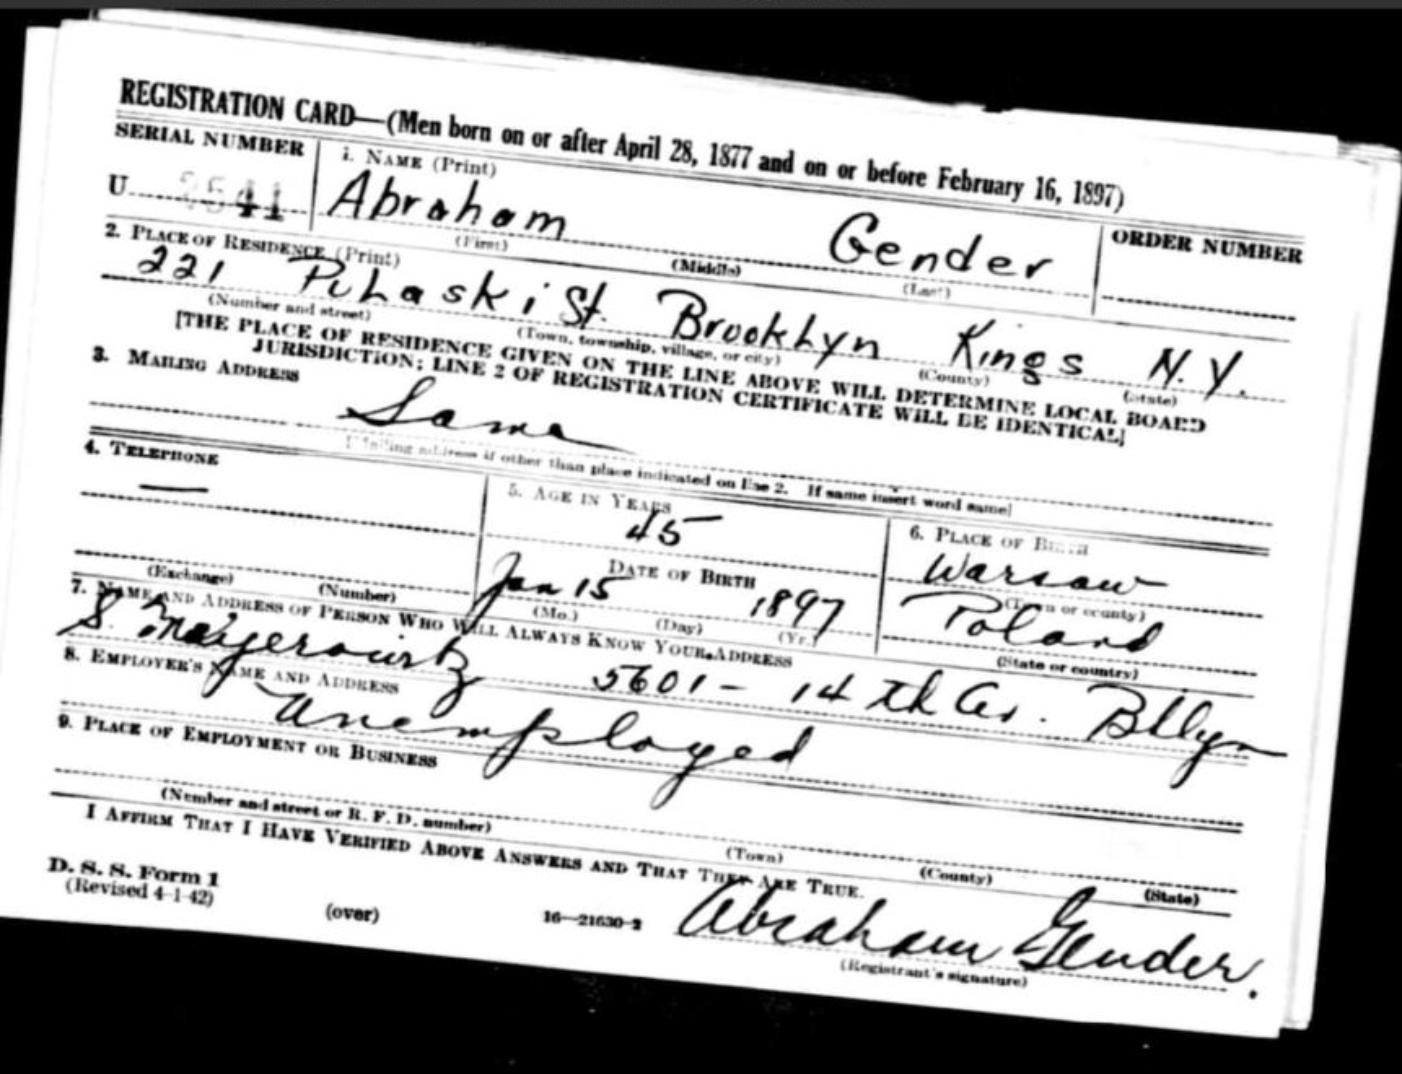 REGISTRATION CARD—(Men born on or after April 28, 1877 and on or before February 16, 1897)
SERIAL NUMBER
1. NAME (Print)
ORDER NUMBER
U
Abraham Gender
(First) (Middle) (Last)
2. PLACE OF RESIDENCE (Print)
221 Pulaski St. Brooklyn Kings N.Y.
(Number and street) (Town, township, village, or city) (County) (State)
[THE PLACE OF RESIDENCE GIVEN ON THE LINE ABOVE WILL DETERMINE LOCAL BOARD
JURISDICTION; LINE 2 OF REGISTRATION CERTIFICATE WILL BE IDENTICAL]
3. MAILING ADDRESS
Same
[Mailing address if other than place indicated on line 2. If same insert word same]
4. TELEPHONE
—
(Exchange) (Number)
5. AGE IN YEARS
45
DATE OF BIRTH
Jan 15 1897
(Mo.) (Day) (Yr.)
6. PLACE OF BIRTH
Warsaw
(Town or county)
Poland
(State or country)
7. NAME AND ADDRESS OF PERSON WHO WILL ALWAYS KNOW YOUR ADDRESS
S. 5601 - 14th Av. Bklyn
8. EMPLOYER'S NAME AND ADDRESS
Unemployed
9. PLACE OF EMPLOYMENT OR BUSINESS
(Number and street or R. F. D. number) (Town) (County) (State)
I AFFIRM THAT I HAVE VERIFIED ABOVE ANSWERS AND THAT THEY ARE TRUE.
D. S. S. Form 1
(Revised 4-1-42)
(over)
16—21630-2
Abraham Gender.
(Registrant's signature)